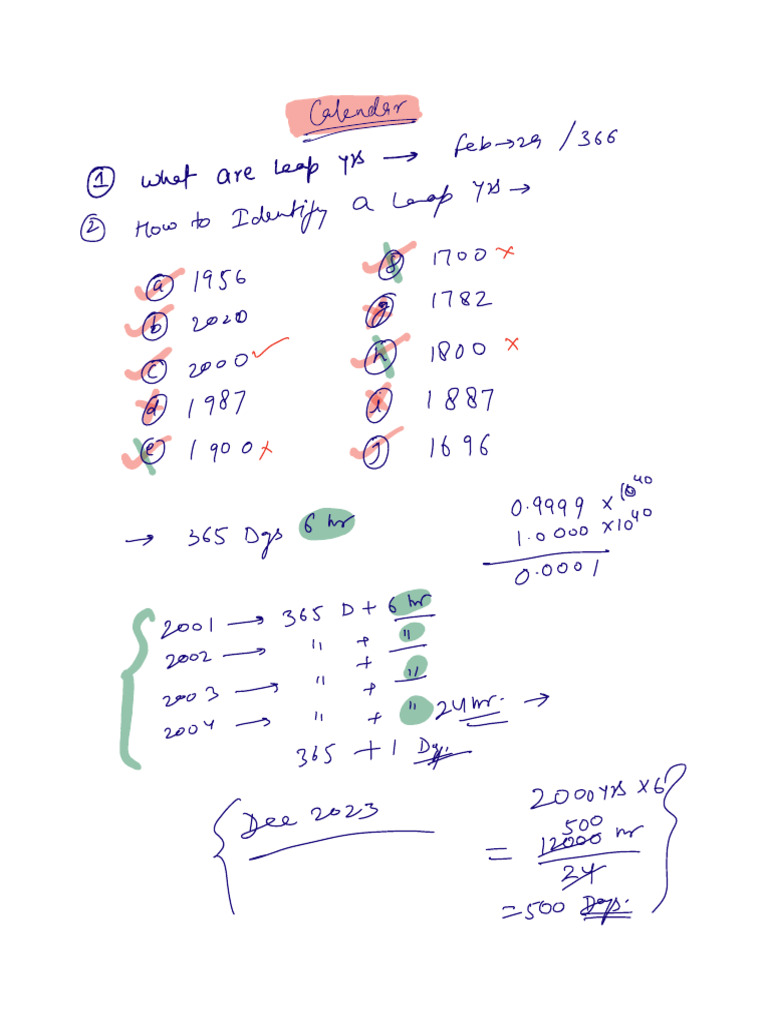 Calendar
① What are leap yrs → Feb→29 /366
② How to Identify a Leap yrs →
ⓐ 1956
ⓑ 2020
ⓒ 2000 ✓
ⓓ 1987
ⓔ 1900 ×
ⓕ 1700 ×
ⓖ 1782
ⓗ 1800 ×
ⓘ 1887
ⓙ 1696
→ 365 Dys 6 hr
0.9999 × 10⁴⁰
1.0000 ×10⁴⁰
0.0001
2001 → 365 D + 6 hr
2002 → " + "
+
2003 → " + "
2004 → " + " 24 hr. →
365 + 1 Dy.
Dec 2023
2000 yrs × 6
500
= 12000 hr
24
= 500 Dys.